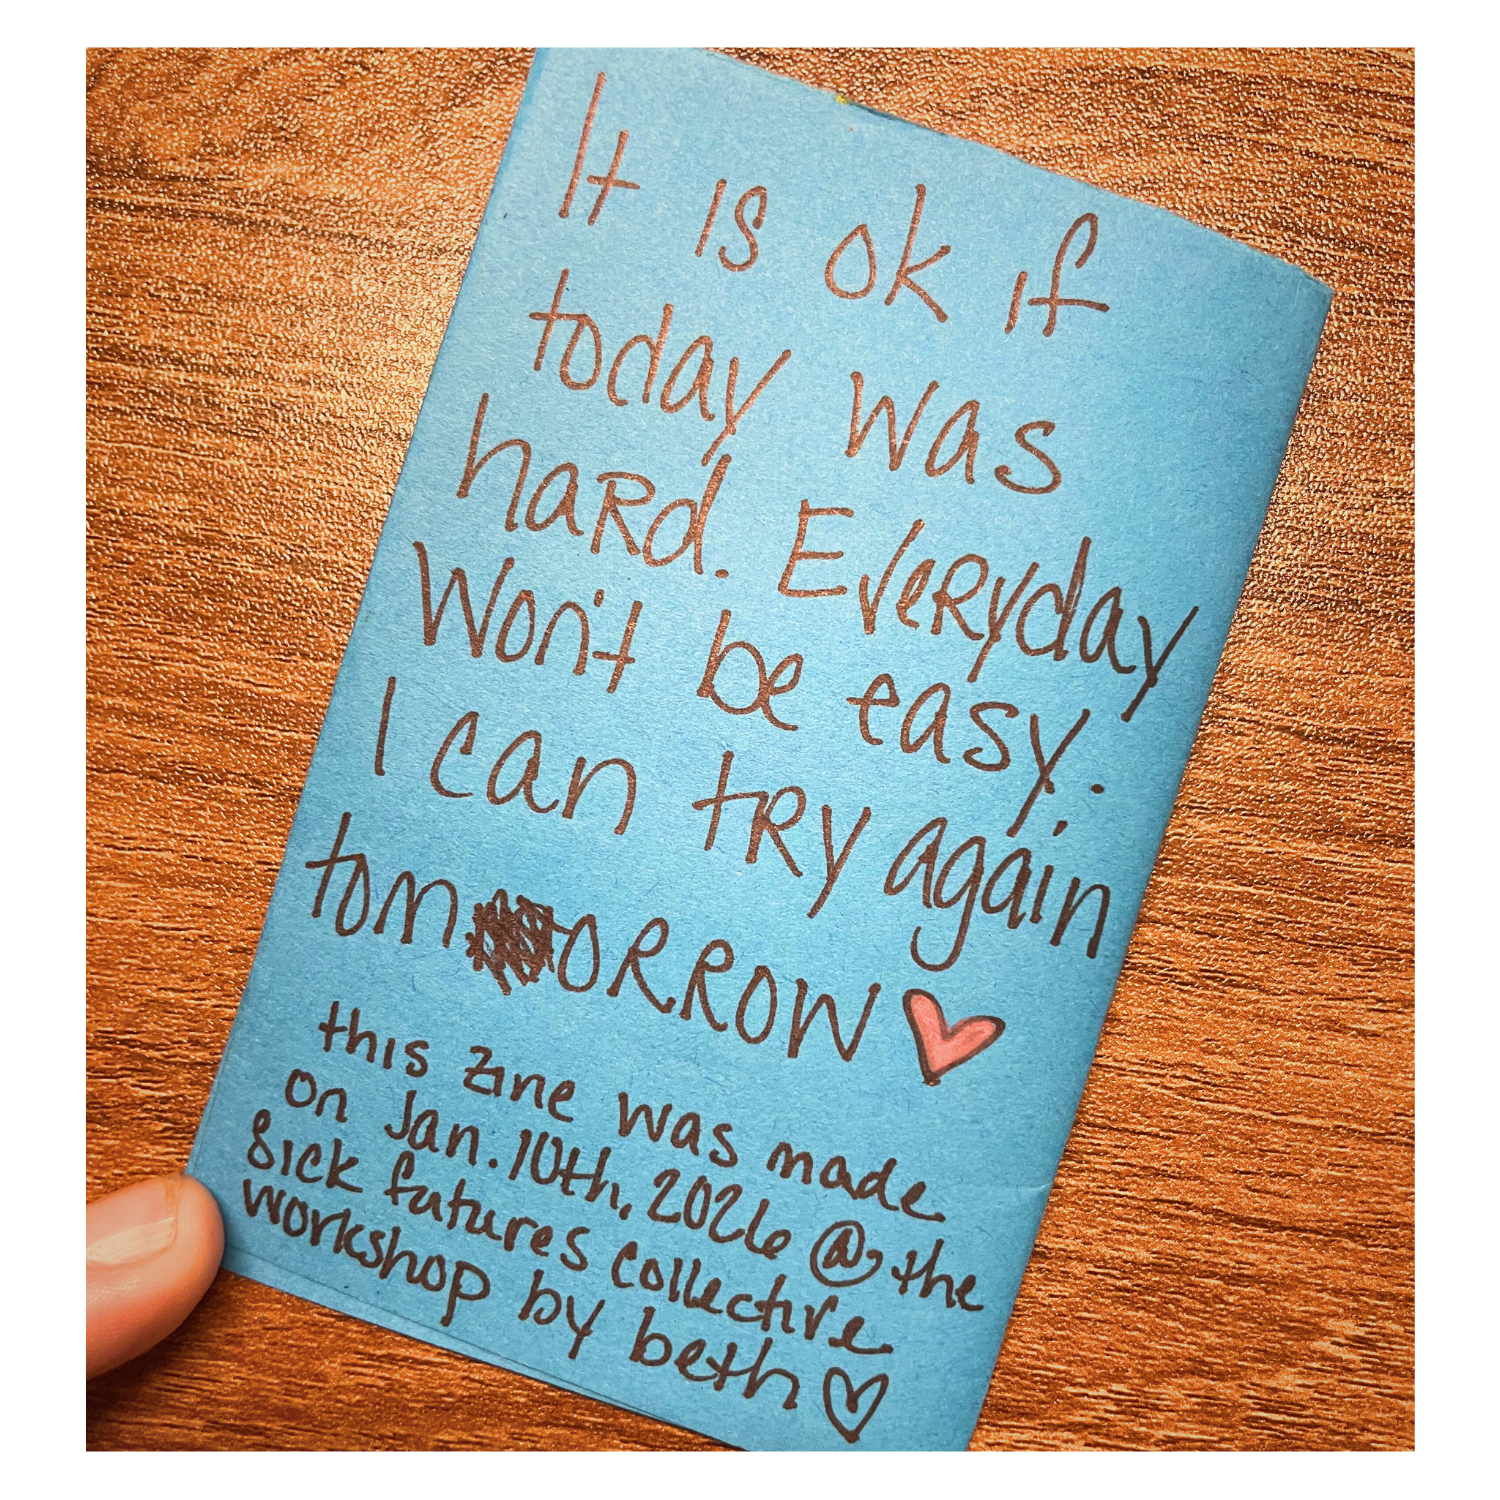 It is ok if
today was
hard. Everyday
Won't be easy.
I can try again
tomorrow
this zine was made
on Jan. 10th, 2026 @ the
Sick futures collective
workshop by beth